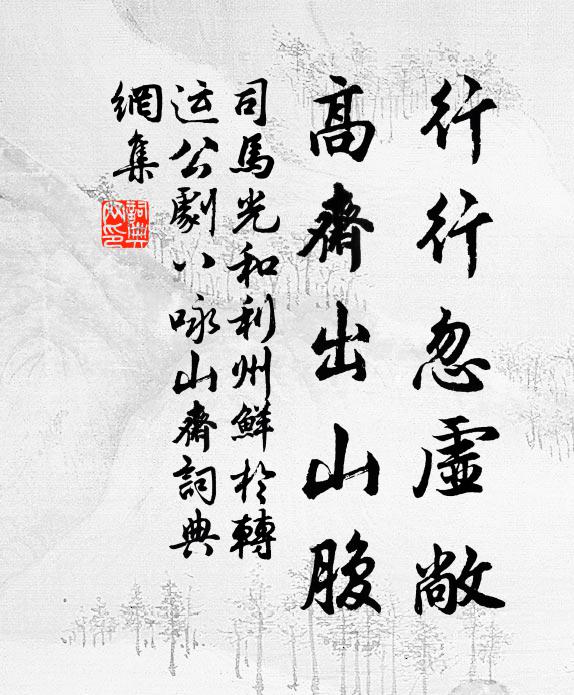 行行忽虛敞
高齋出山腹
司馬光和利州鮮於轉
运公劇八咏山齋詞典
網集
詞典
网印